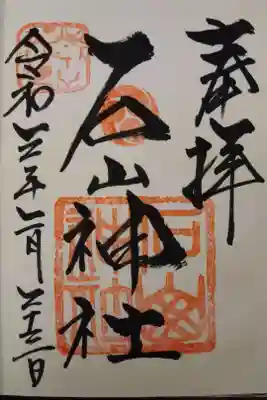 奉拝
石山神社
令和三年二月二十三日